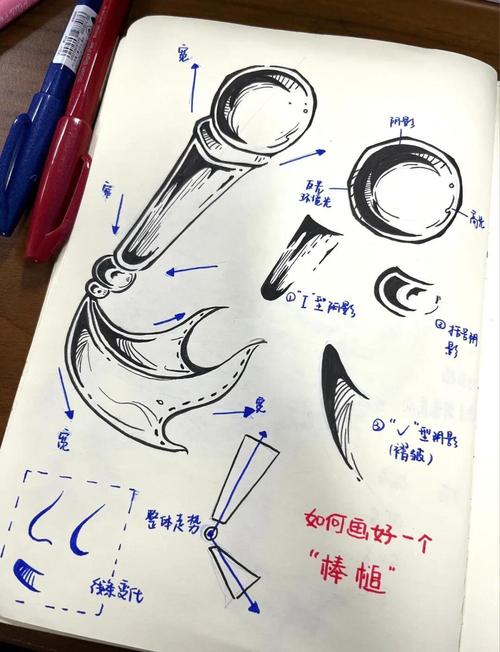 宽
阴影
反光
环境光
高光
窄
①“I”型阴影
②括号阴
影
宽
宽
③“✓”型阴影
(褶皱)
整体走势
线条变化
如何画好一个
“棒槌”